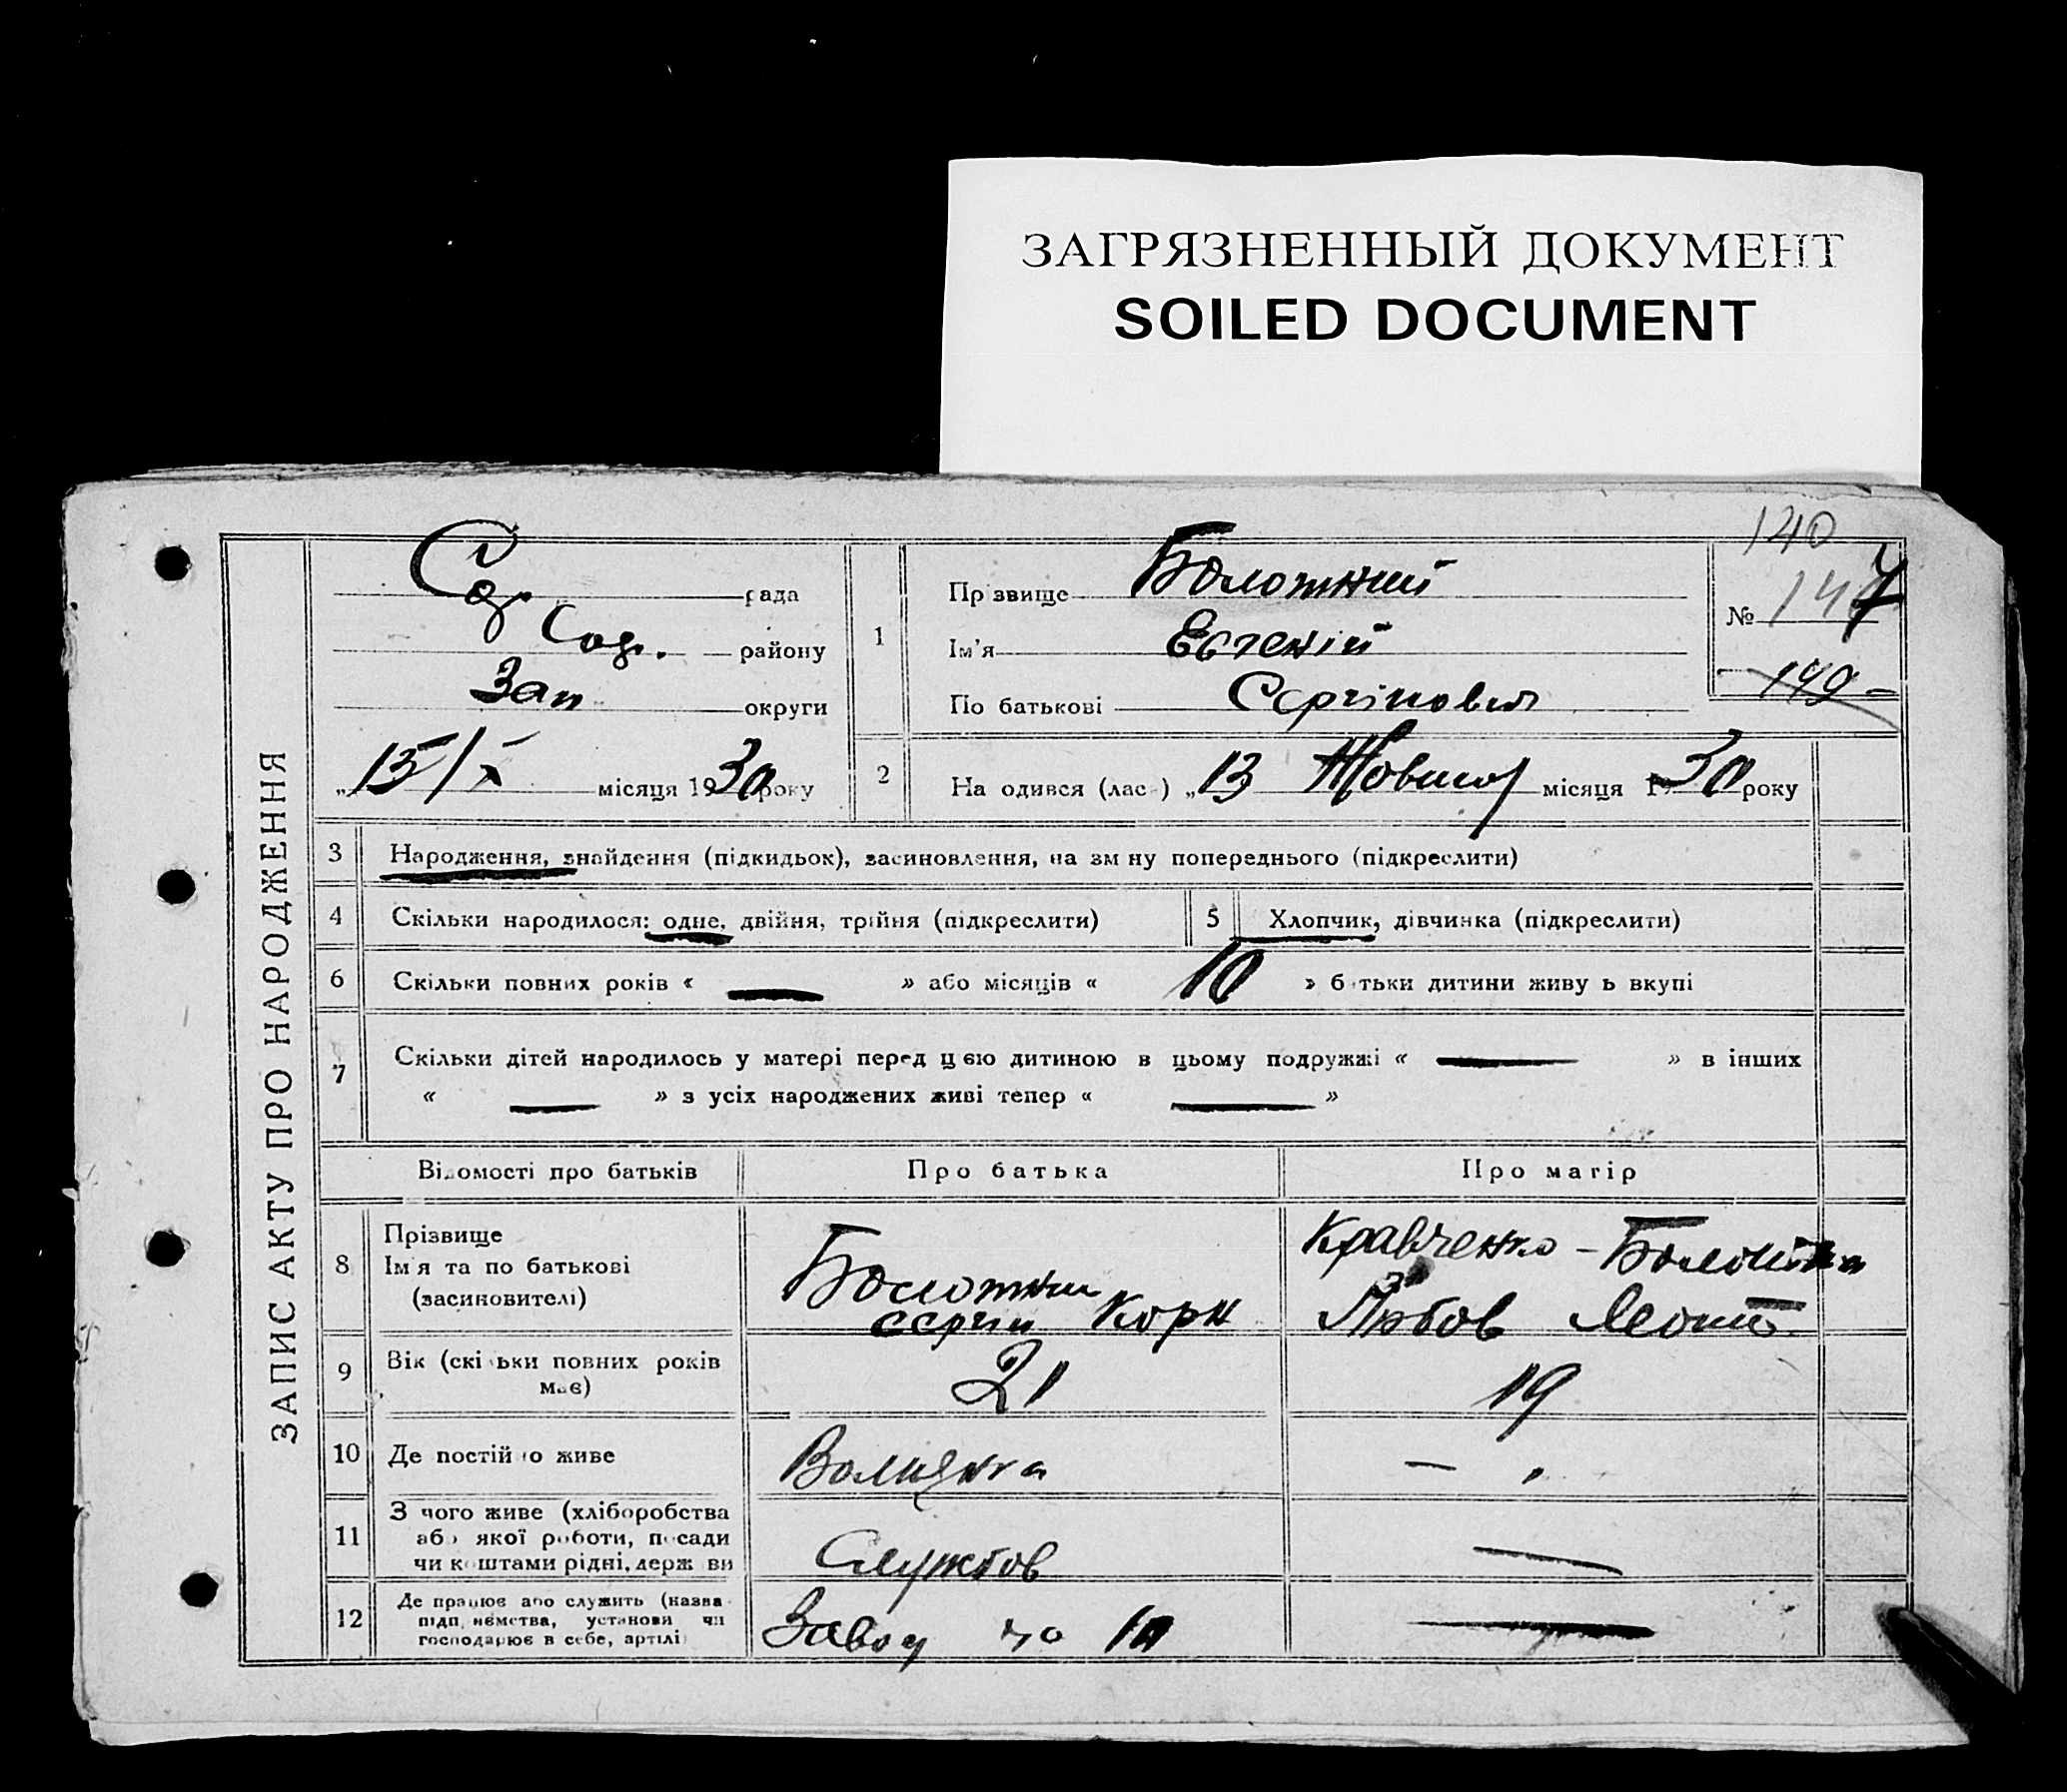 ЗАГРЯЗНЕННЫЙ ДОКУМЕНТ
SOILED DOCUMENT
140
ЗАПИС АКТУ ПРО НАРОДЖЕННЯ
рада
Соф. району
Зап округи
„15/X місяця 1930 року
1
Прізвище Болотний
Ім'я Евгеній
По батькові
№ 147
149
2
Народився (лась) „13 Жовтня місяця 1930 року
3 Народження, знайдення (підкидьок), засиновлення, на зміну попереднього (підкреслити)
4 Скільки народилося: одне, двійня, трійня (підкреслити)
5 Хлопчик, дівчинка (підкреслити)
6 Скільки повних років « — » або місяців « 10 » батьки дитини живуть вкупі
7 Скільки дітей народилось у матері перед цією дитиною в цьому подружжі « — » в інших
« — » з усіх народжених живі тепер « — »
Відомості про батьків Про батька Про матір
8 Прізвище
Ім'я та по батькові
(засиновителі)
Болотний
Сергій Корн
Кравченко - Болотна
Любов Леонт
9 Вік (скільки повних років
має) 21 19
10 Де постійно живе — "
11 З чого живе (хліборобства
або якої роботи, посади
чи коштами рідні, держави
Службов —
12 Де працює або служить (назва
підприємства, установи чи
господарює в себе, артілі)
Завод но 10 —